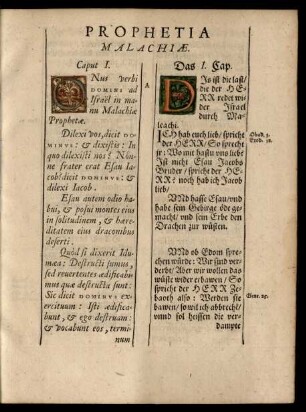 PROPHETIA
MALACHIÆ.
Caput I.
ONus verbi
DOMINI ad
Israël in ma-
nu Malachiæ
Prophetæ.
Dilexi vos, dicit DO-
MINUS: & dixistis: In
quo dilexisti nos? Nón-
ne frater erat Esau Ia-
cob? dicit DOMINUS: &
dilexi Iacob.
Esau autem odio ha-
bui, & posui montes eius
in solitudinem, & hære-
ditatem eius draconibus
deserti.
Quòd si dixerit Idu-
mæa: Destructi sumus,
sed reuertentes ædificabi-
mus quæ destructa sunt:
Sic dicit DOMINUS ex-
ercituum: Isti ædifica-
bunt, & ego destruam:
& vocabunt eos, termi-
num
A
Das I. Cap.
DIs ist die last/
die der HE-
RR redet wi-
der Israel
durch Ma-
leachi.
ICH hab euch lieb/ spricht
der HERR/ So sprecht
jr: Wo mit hastu vns lieb?
Ist nicht Esau Jacobs
Bruder/ spricht der HE-
RR? noch hab ich Jacob
lieb/
VNd hasse Esau/ vnd
habe sein Gebirge öde ge-
macht/ vnd sein Erbe den
Drachen zur wüsten.
VNd ob Edom spre-
chen würde: Wir sind ver-
derbt/ Aber wir wollen das
wüste wider erbawen/ So
spricht der HERR Ze-
baoth also: Werden sie
bawen/ so wil ich abbrechē/
vnd sol heissen die ver-
dampte